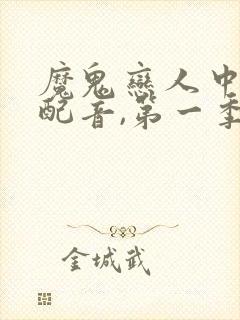 魔鬼戀人中
配音,第一季
金城武